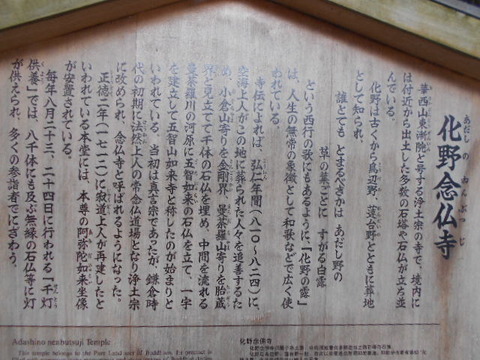 化野念仏寺
あだしの ねんぶつじ
華西山東漸院と号する浄土宗の寺で、境内に
は付近から出土した多数の石塔や石仏が立ち並
んでいる。
化野は古くから鳥辺野、蓮台野とともに葬地
として知られ、
誰とても とまるべきかは あだし野の
草の葉ごとに すがる白露
という西行の歌にもあるように、「化野の露」
は、人生の無常の象徴として和歌などで広く使
われている。
寺伝によれば、弘仁年間(八一〇〜八二四)に、
空海上人がこの地に葬られた人々を追善するた
め、小倉山寄りを金剛界、曼荼羅山寄りを胎蔵
界と見立てて千体の石仏を埋め、中間を流れる
曼荼羅川の河原に五智如来の石仏を立て、一宇
を建立して五智山如来寺と称したのが始まりと
いわれている。当初は真言宗であったが、鎌倉時
代の初期に法然上人の常念仏道場となり浄土宗
に改められ、念仏寺と呼ばれるようになった。
正徳二年(一七一二)に寂道上人が再建したと
いわれている本堂には、本尊の阿弥陀如来坐像
が安置されている。
毎年八月二十三、二十四日に行われる「千灯
供養」では、八千体にも及ぶ無縁の石仏等に灯
が供えられ、多くの参詣者でにぎわう。
Adashino nenbutsuji Temple
This temple belongs to the Pure Land sect of Buddhism. Its precinct is
化野念佛寺